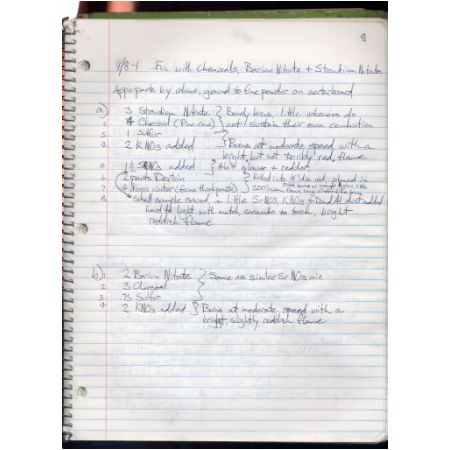 8
4/8-1 Fun with Chemicals, Barium Nitrate + Strontium Nitrate
Approx parts by volume, ground to fine powder on
a) 3 Strontium Nitrate } Barely burns, little volcanoes do
2 4 Charcoal (Pine cone) } not sustain their own combustion
3 1 Sulfur
4 2 KNO3 added } Burns at moderate speed with a
bright, but not terribly red, flame
5 added } slower + redder
6 2 parts Dextrin } Rolled into rod, placed in
7 4 drops water (forms thick paste)
8 small sample saved, little SrNO3, KNO3 + added
hard to light with match, bright
reddish flame
b) 1 2 Barium Nitrate } Same as similar SrNO3 mix
2 3 Charcoal
3 .75 Sulfur
4 2 KNO3 added } Burns at moderate speed with a
bright, slightly reddish flame